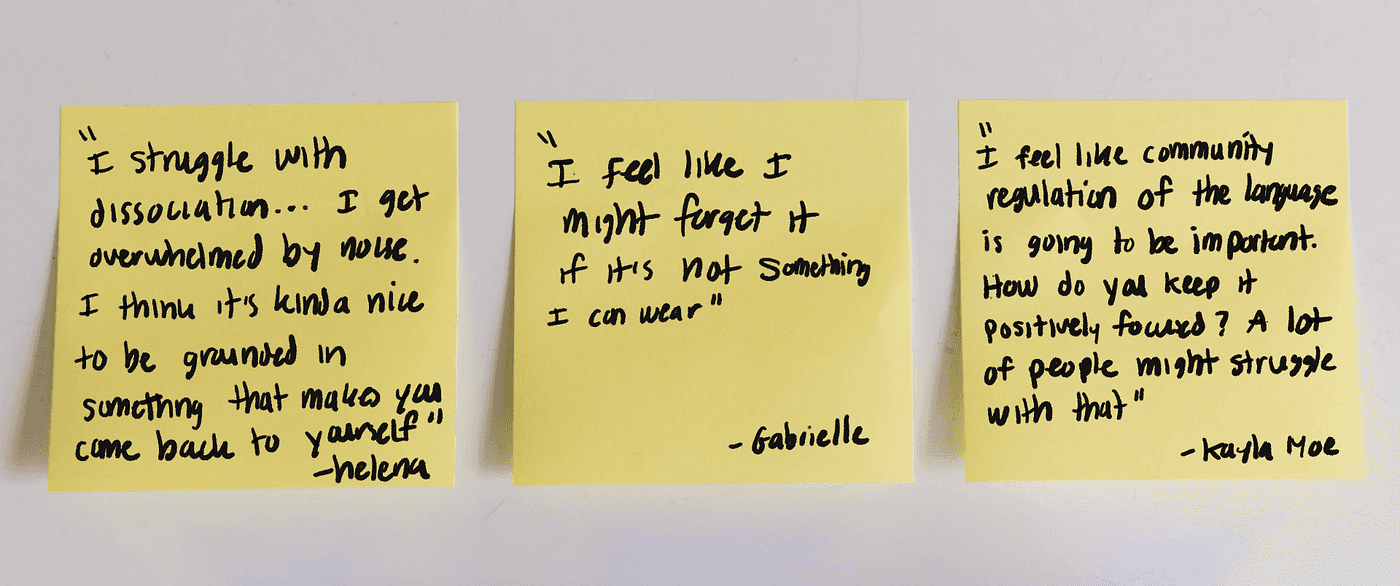 "I struggle with
dissociation... I get
overwhelmed by noise.
I think it's kinda nice
to be grounded in
something that makes you
come back to yourself"
-helena
"I feel like I
might forget it
if it's not something
I can wear"
- Gabrielle
"I feel like community
regulation of the language
is going to be important.
How do you keep it
positively focused? A lot
of people might struggle
with that"
- Kayla Moe